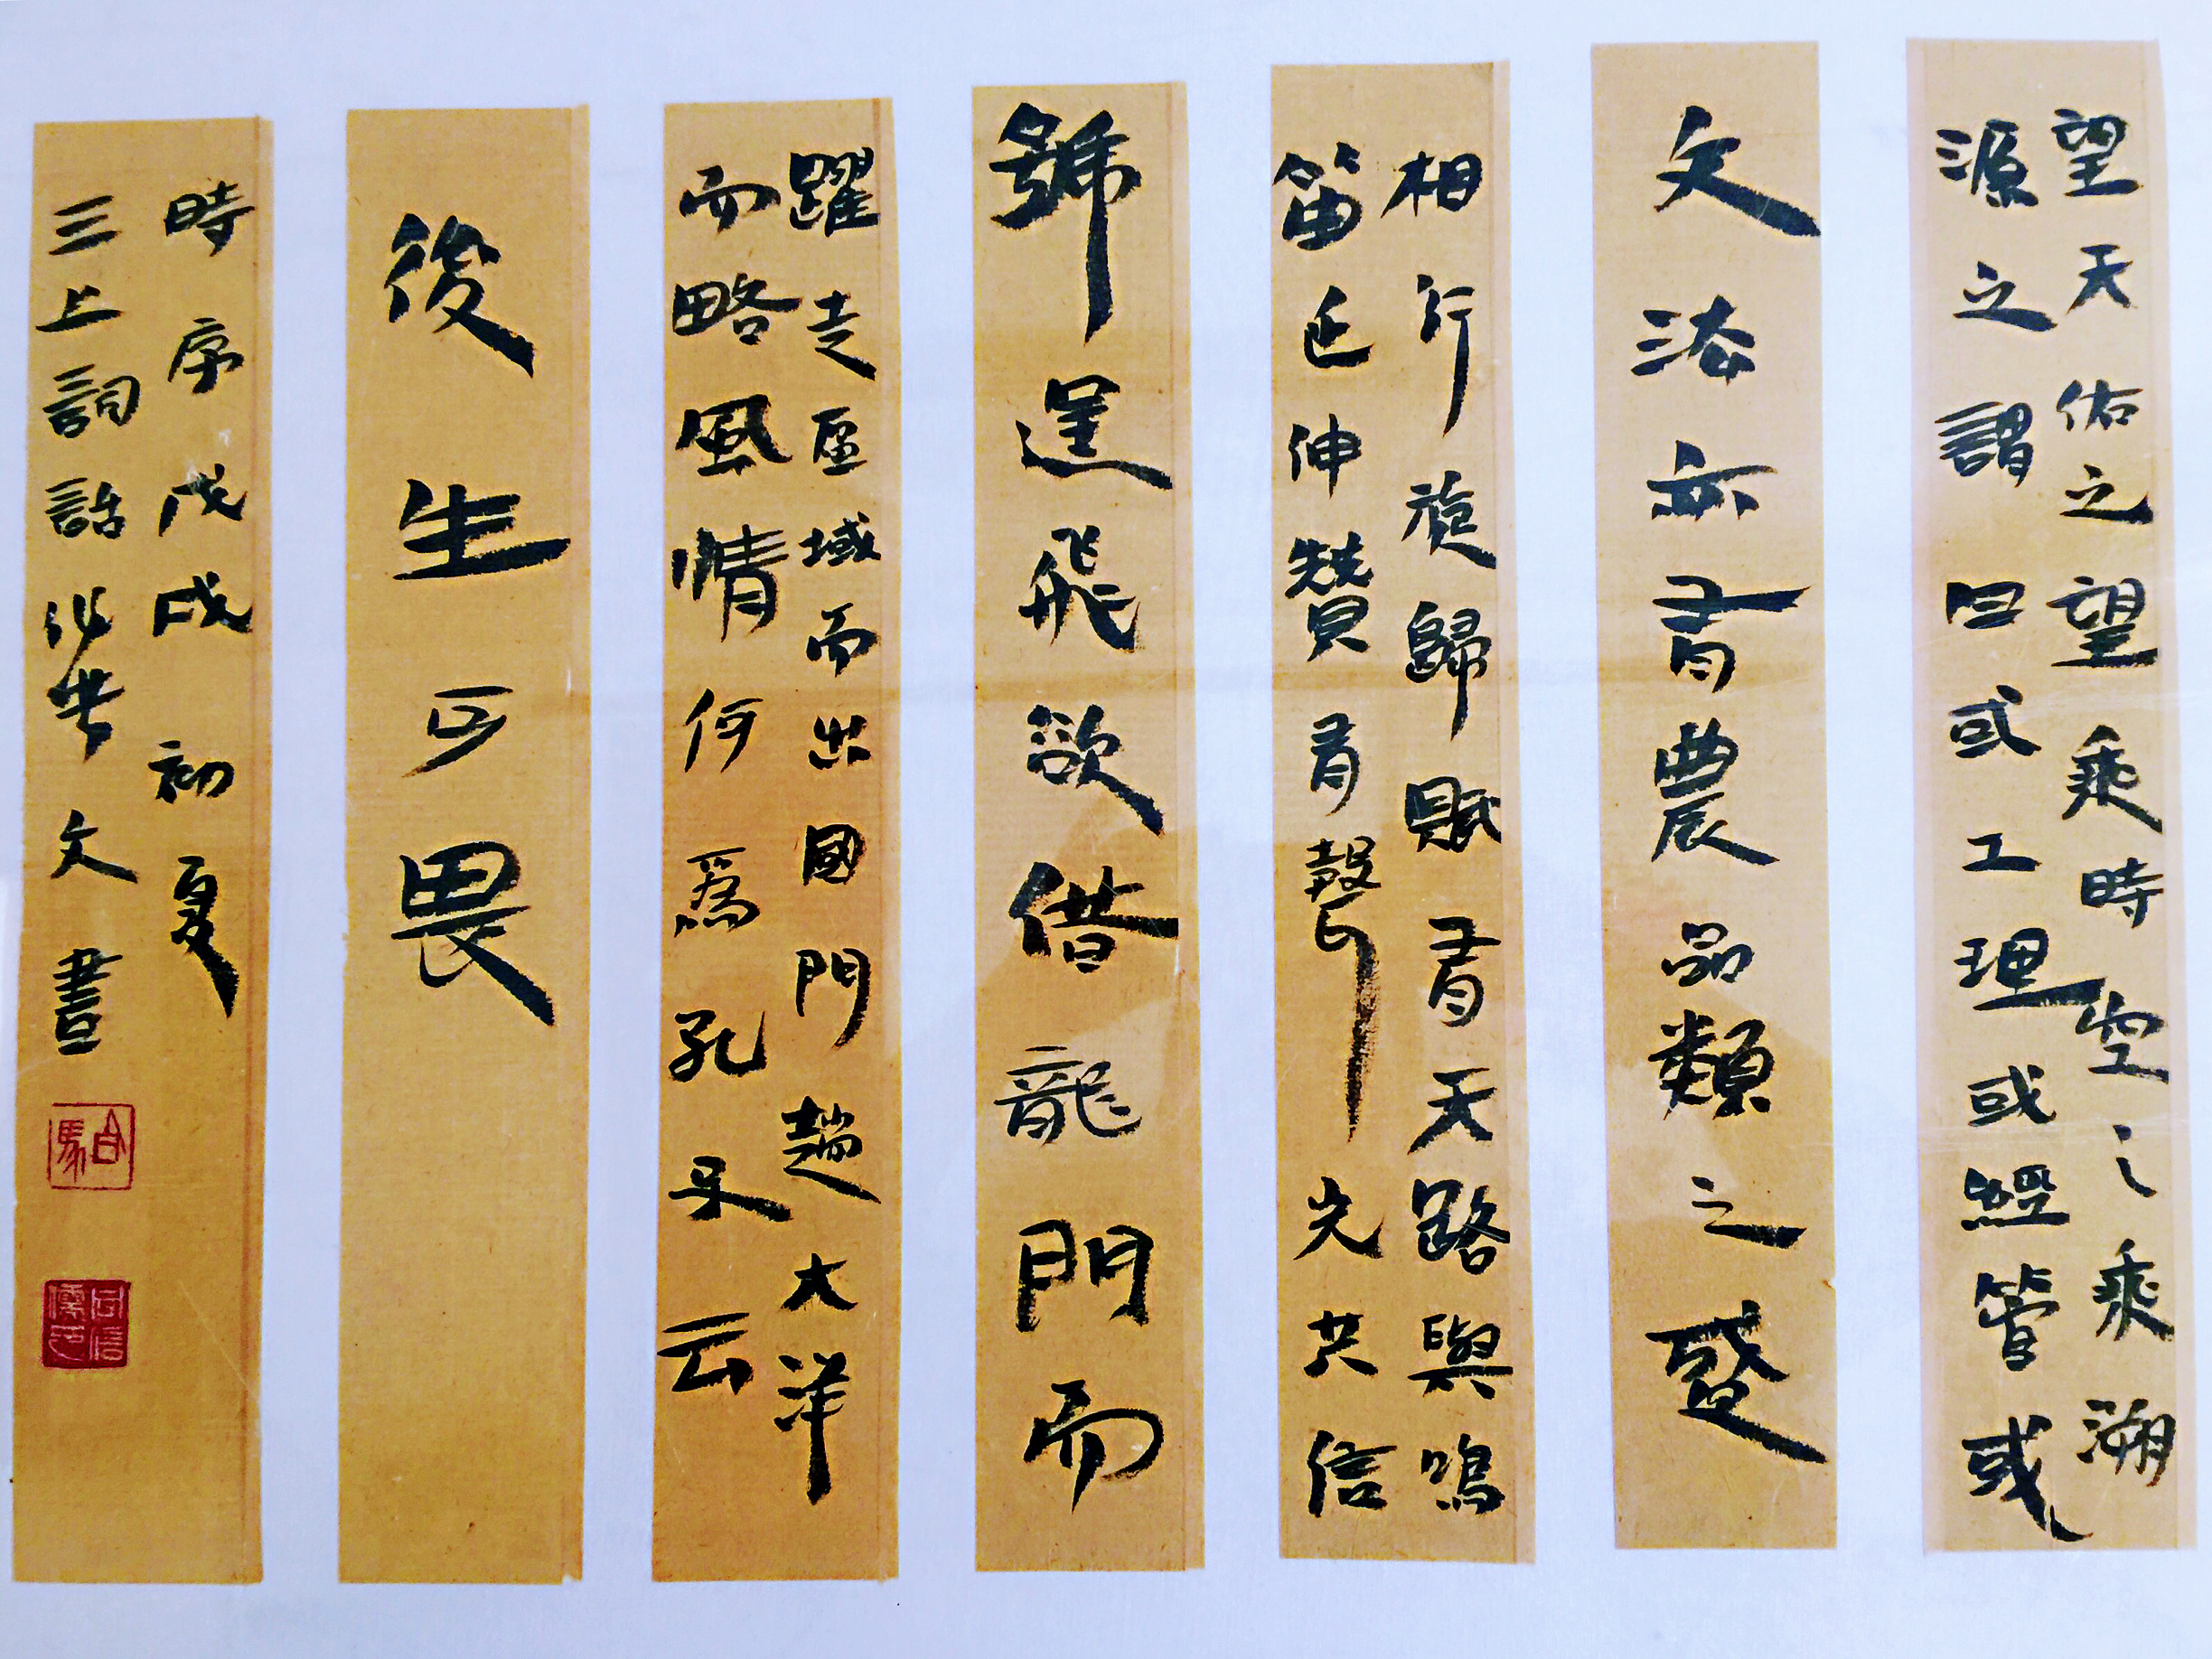 望天佑之望乘時空之乘溯
源之謂曰或工理或經管或
文法亦有農品類之盛
相行旋歸賦有天路與鳴
笛延伸贊有聲光共信
號逞飛欲借龍門而
躍走區域而出國門趟大洋
而略風情何爲孔子云
後生可畏
時序戊戌初夏
三上詞話 文書